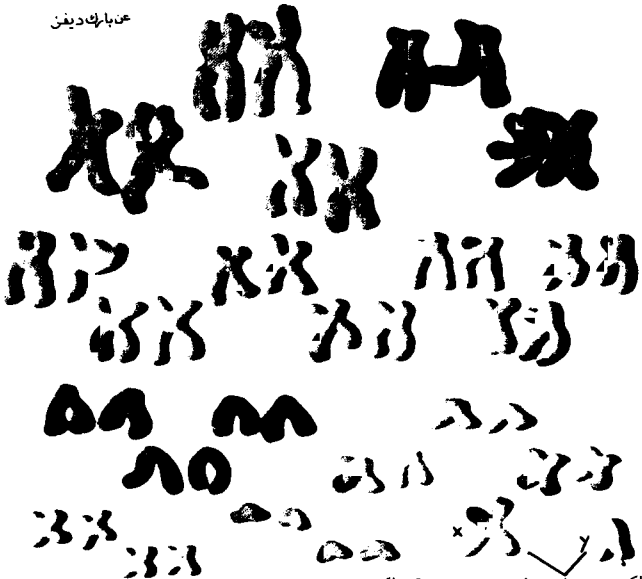 عن بارك ديفز
x
y